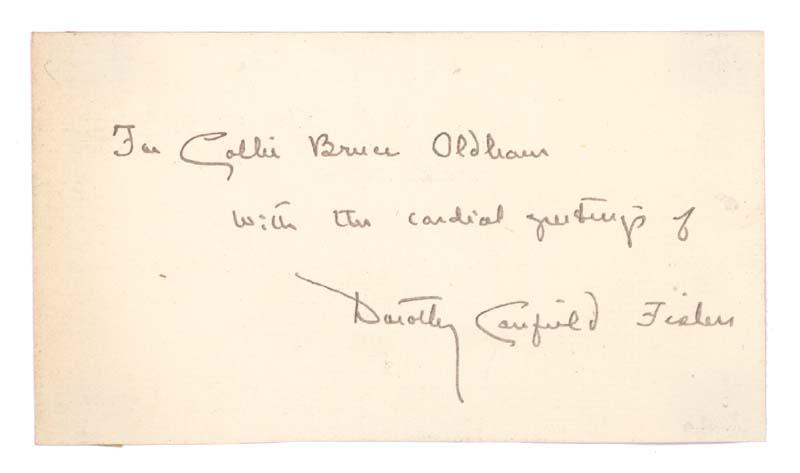 For Collie Bruce Oldham
with the cordial greetings of
Dorothy Canfield Fisher